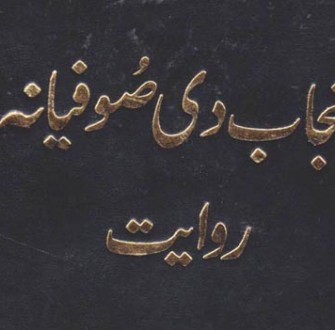 نجاب دی صُوفیانہ
روایت